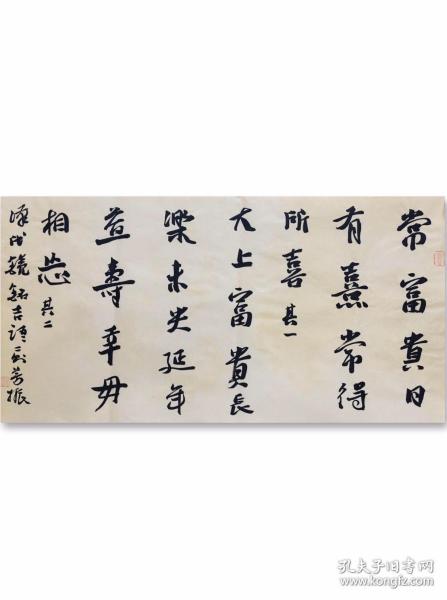 常富貴日
有熹常得
所喜 其一
大上富貴長
樂未央延年
益壽幸毋
相忘 其二
漢代鏡銘吉語二則 芳振
孔夫子旧书网
www.kongfz.com